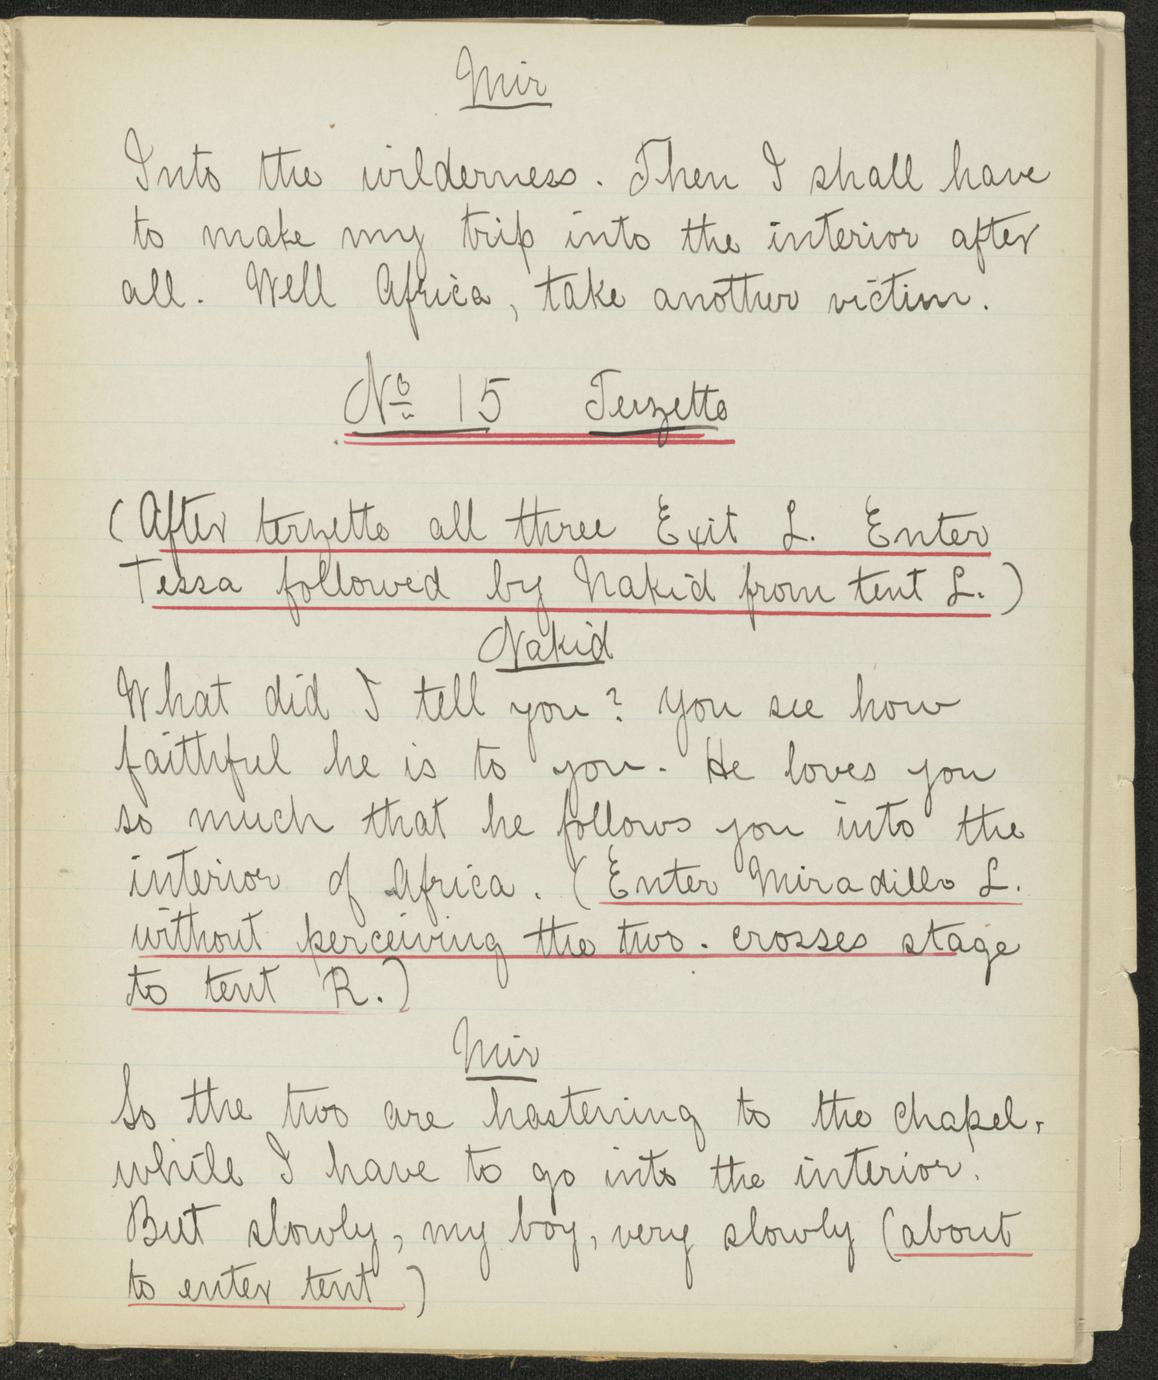 Mir
Into the wilderness. Then I shall have
to make my trip into the interior after
all. Well Africa, take another victim.
No 15 Terzetto
(After terzetto all three Exit L. Enter
Tessa followed by Nakid from tent L.)
Nakid
What did I tell you? You see how
faithful he is to you. He loves you
so much that he follows you into the
interior of Africa. (Enter Miradillo L.
without perceiving the two. crosses stage
to tent R.)
Mir
So the two are hastening to the chapel,
while I have to go into the interior.
But slowly, my boy, very slowly (about
to enter tent)